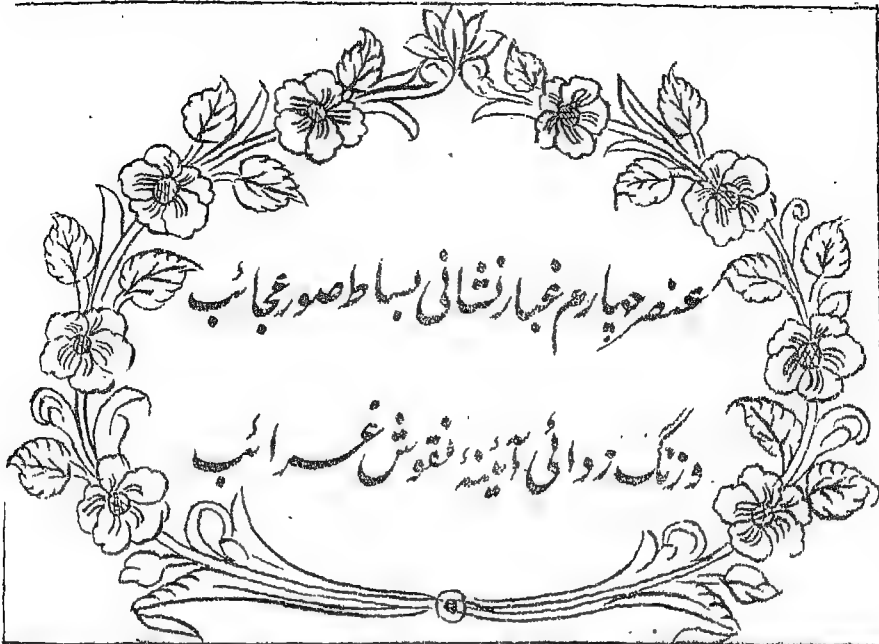 عنصر چهارم غبار نشانی بساط صور عجائب
و زنگ زدائی آئینهٔ نقوش غرائب